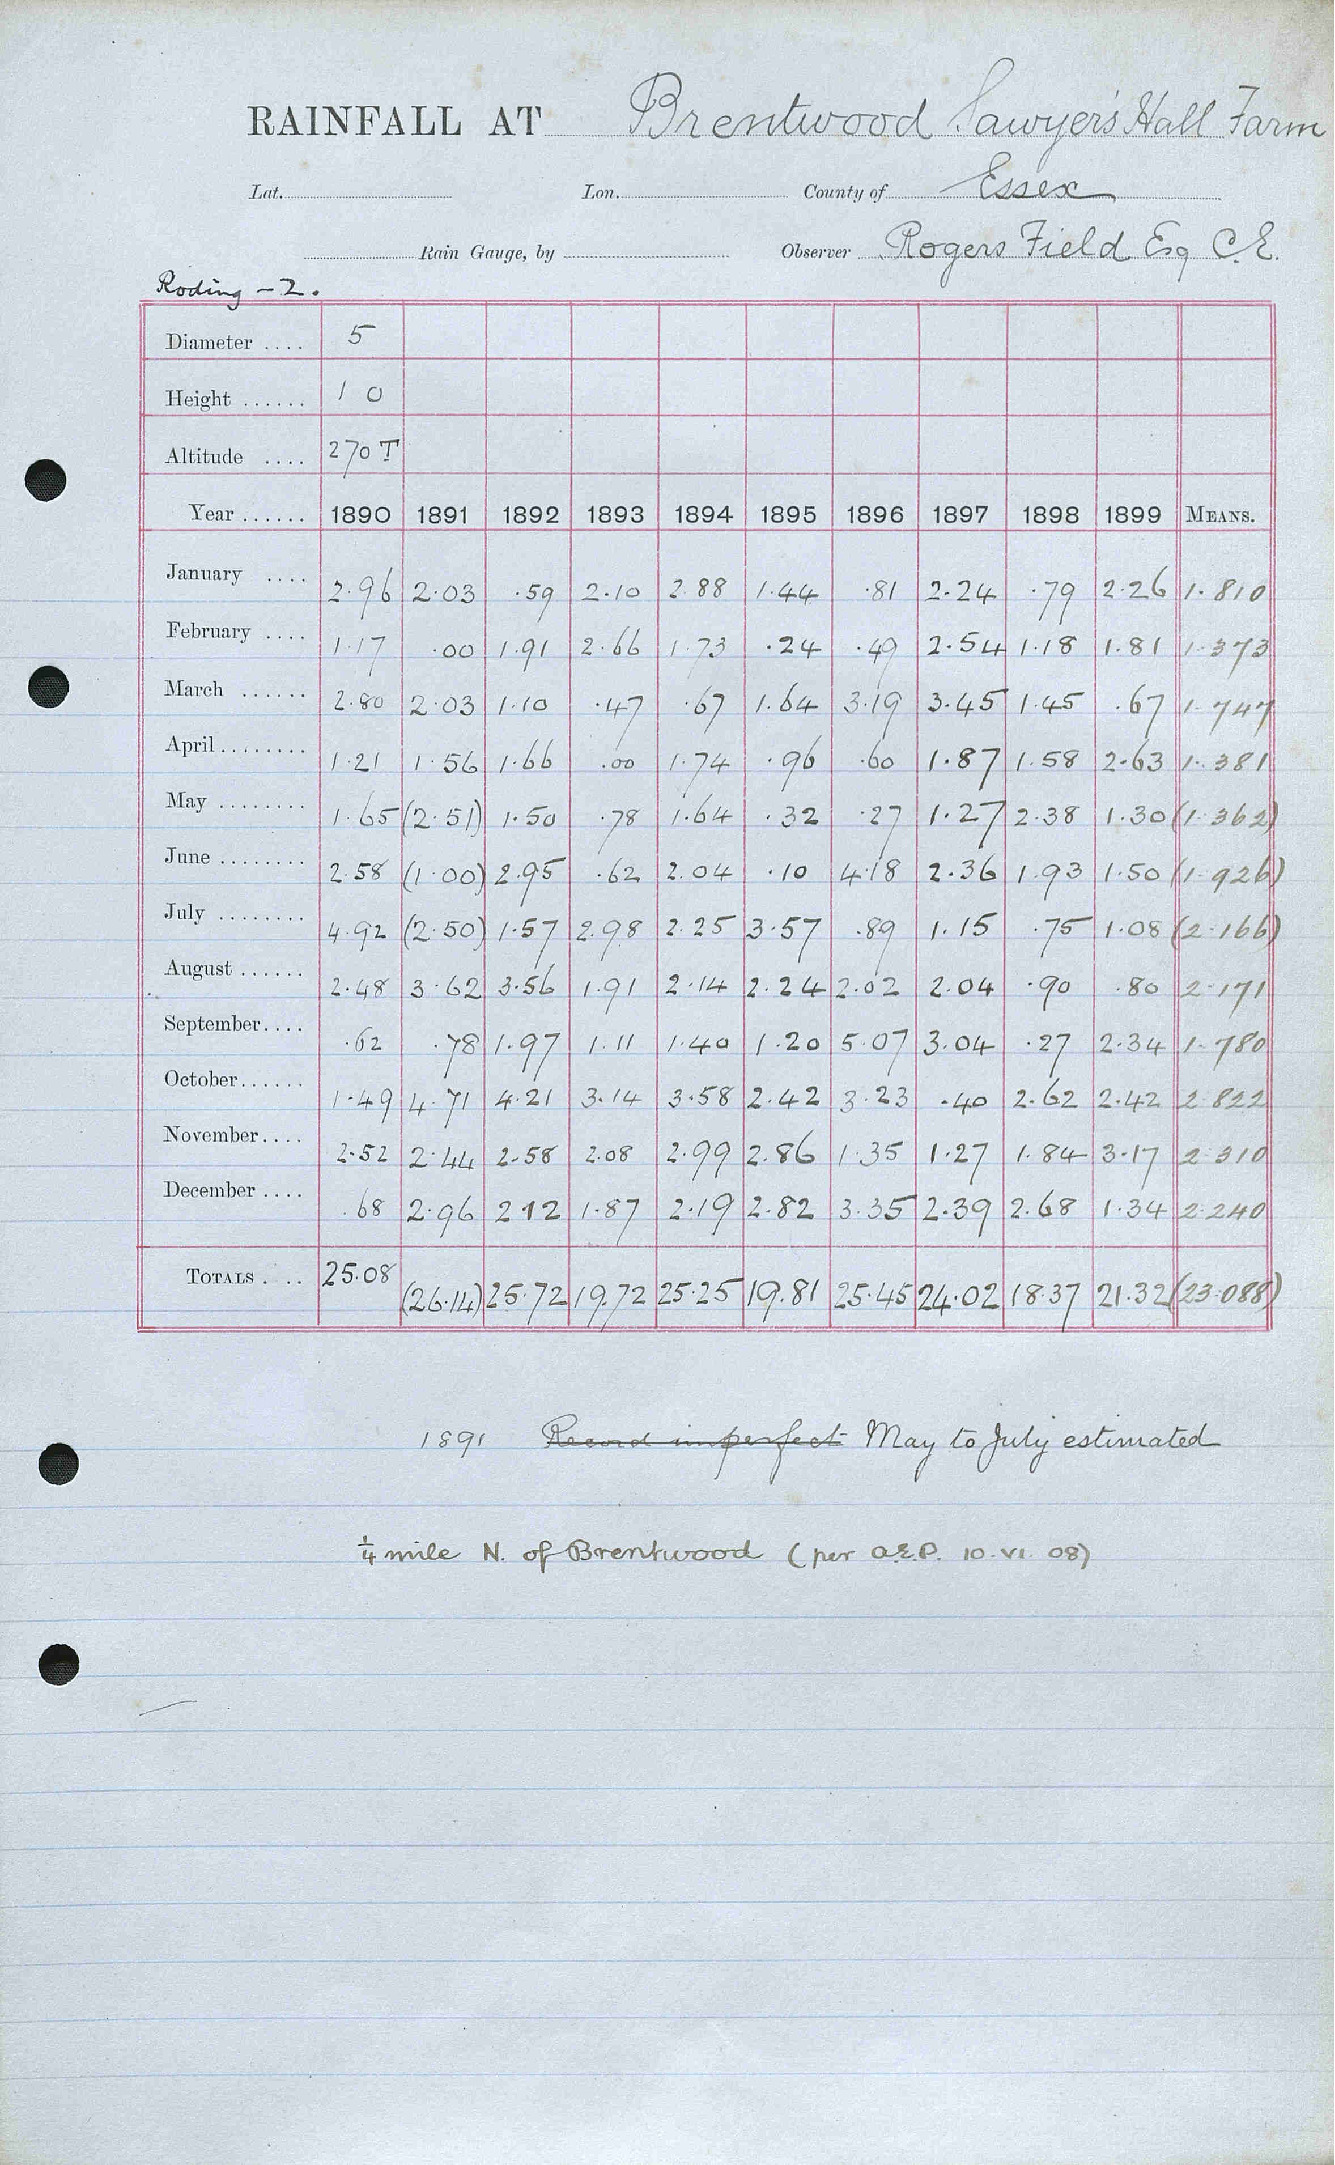 RAINFALL AT Brentwood Sawyer's Hall Farm
Lat. Lon. County of Essex
Rain Gauge, by Observer Rogers Field Esq C.E.
Roding - 2.
Diameter .... 5
Height ...... 1 0
Altitude .... 270 T
Year ...... 1890 1891 1892 1893 1894 1895 1896 1897 1898 1899 MEANS.
January .... 2.96 2.03 .59 2.10 2.88 1.44 .81 2.24 .79 2.26 1.810
February .... 1.17 .00 1.91 2.66 1.73 .24 .49 2.54 1.18 1.81 1.373
March ...... 2.80 2.03 1.10 .47 .67 1.64 3.19 3.45 1.45 .67 1.747
April ........ 1.21 1.56 1.66 .00 1.74 .96 .60 1.87 1.58 2.63 1.381
May ........ 1.65 (2.51) 1.50 .78 1.64 .32 .27 1.27 2.38 1.30 (1.362)
June ........ 2.58 (1.00) 2.95 .62 2.04 .10 4.18 2.36 1.93 1.50 (1.926)
July ........ 4.92 (2.50) 1.57 2.98 2.25 3.57 .89 1.15 .75 1.08 (2.166)
August ...... 2.48 3.62 3.56 1.91 2.14 2.24 2.02 2.04 .90 .80 2.171
September .... .62 .78 1.97 1.11 1.40 1.20 5.07 3.04 .27 2.34 1.780
October ...... 1.49 4.71 4.21 3.14 3.58 2.42 3.23 .40 2.62 2.42 2.822
November .... 2.52 2.44 2.58 2.08 2.99 2.86 1.35 1.27 1.84 3.17 2.310
December .... .68 2.96 2.12 1.87 2.19 2.82 3.35 2.39 2.68 1.34 2.240
TOTALS .... 25.08 (26.14) 25.72 19.72 25.25 19.81 25.45 24.02 18.37 21.32 (23.088)
1891 Record imperfect May to July estimated
¼ mile N. of Brentwood (per A.E.P. 10.VI.08)